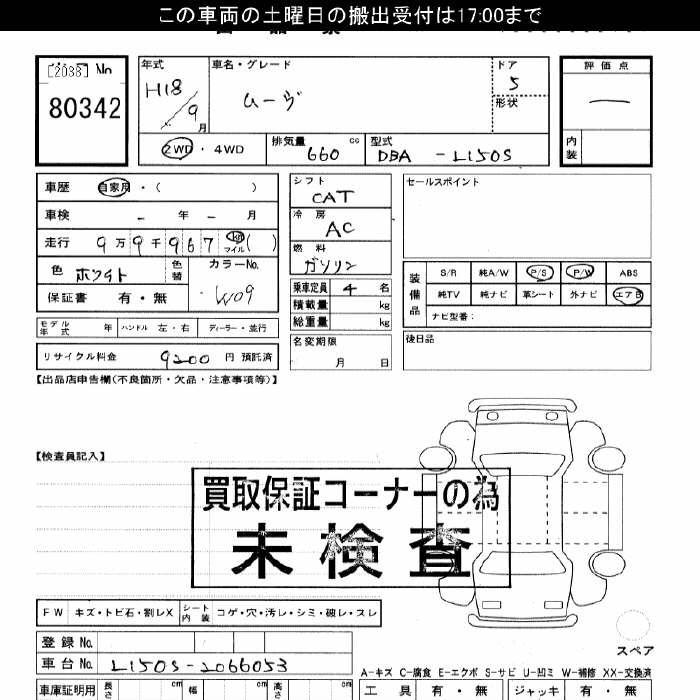 この車両の土曜日の搬出受付は17:00まで
[2038] No
80342
年式 H18/9月
車名・グレード ムーヴ
ドア 5
形状
評価点 ー
内装
2WD ・ 4WD
排気量 660 cc
型式 DBA - L150S
車歴 自家用 ・ ( )
車検 - 年 - 月
走行 9万9千967 km マイル ( )
色 ホワイト 色替
カラーNo. W09
保証書 有・無
シフト CAT
冷房 AC
燃料 ガソリン
乗車定員 4 名
積載量 kg
総重量 kg
名変期限 月 日
セールスポイント
装備品
S/R 純A/W P/S P/W ABS
純TV 純ナビ 革シート 外ナビ エアB
ナビ型番:
後日品
モデル年式 年 ハンドル 左・右 ディーラー・並行
リサイクル料金 9200 円 預託済
【出品店申告欄(不良箇所・欠品・注意事項等)】
【検査員記入】
買取保証コーナーの為
未検査
FW キズ・トビ石・割レX シート内装 コゲ・穴・汚レ・シミ・破レ・スレ
登録 No.
車台 No. L150S-2066053
スペア
A-キズ C-腐食 E-エクボ S-サビ U-凹ミ W-補修 XX-交換済
車庫証明用 長さ cm 幅 cm 高さ cm
工具 有・無 ジャッキ 有・無